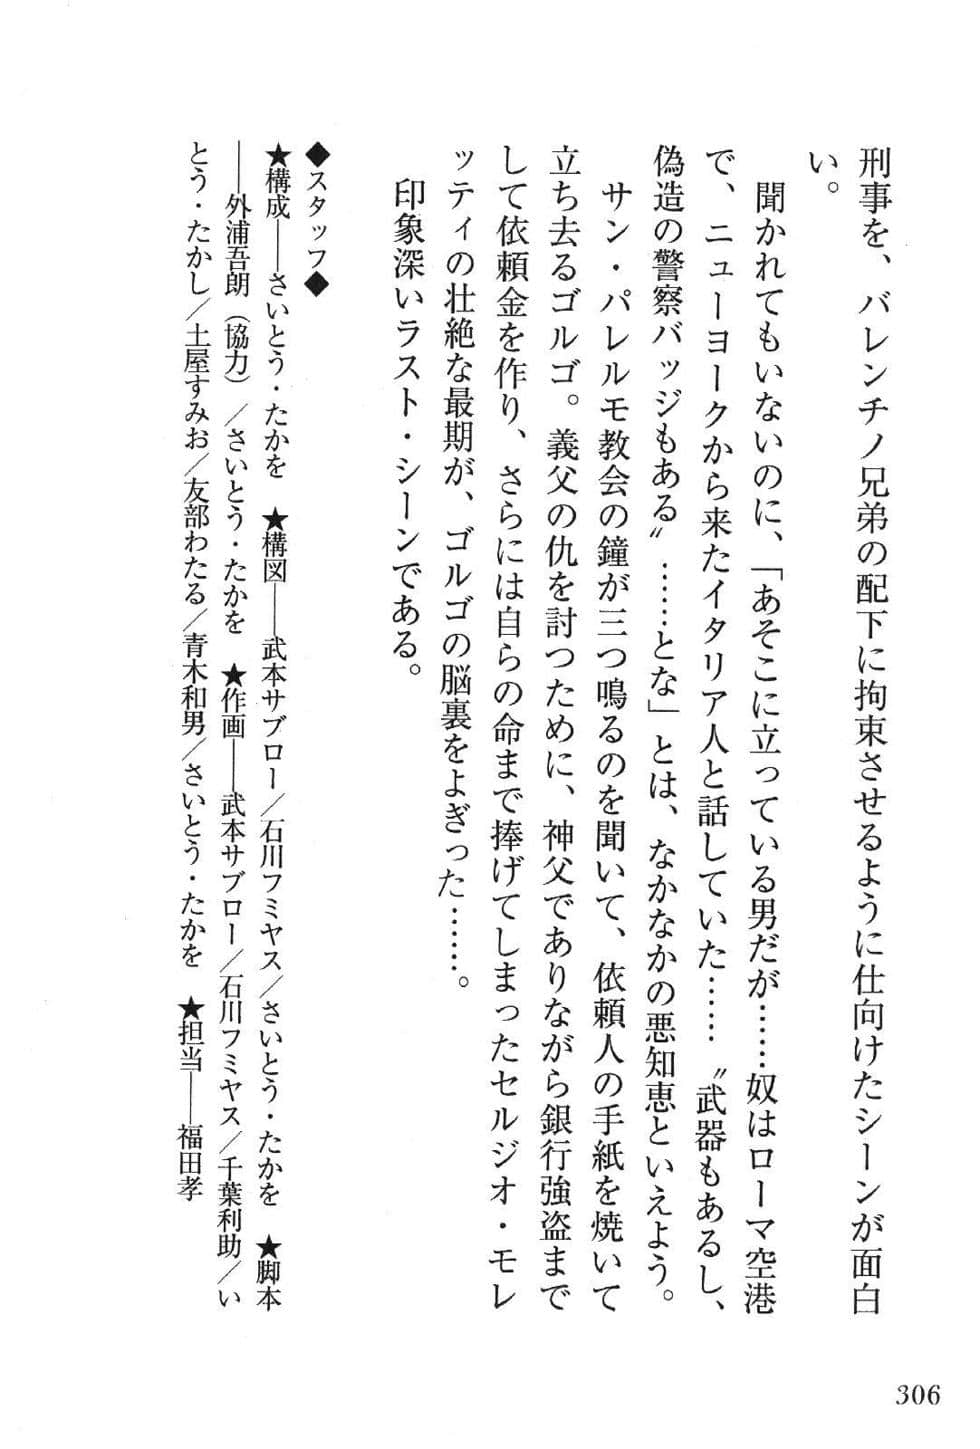 刑事を、バレンチノ兄弟の配下に拘束させるように仕向けたシーンが面白
い。
　聞かれてもいないのに、「あそこに立っている男だが……奴はローマ空港
で、ニューヨークから来たイタリア人と話していた……〝武器もあるし、
偽造の警察バッジもある〟……とな」とは、なかなかの悪知恵といえよう。
　サン・パレルモ教会の鐘が三つ鳴るのを聞いて、依頼人の手紙を焼いて
立ち去るゴルゴ。義父の仇を討つために、神父でありながら銀行強盗まで
して依頼金を作り、さらには自らの命まで捧げてしまったセルジオ・モレ
ッティの壮絶な最期が、ゴルゴの脳裏をよぎった……。
　印象深いラスト・シーンである。
◆スタッフ◆
★構成――さいとう・たかを　★構図――武本サブロー/石川フミヤス/さいとう・たかを　★脚本
――外浦吾朗（協力）/さいとう・たかを　★作画――武本サブロー/石川フミヤス/千葉利助/い
とう・たかし/土屋すみお/友部わたる/青木和男/さいとう・たかを　★担当――福田孝
306